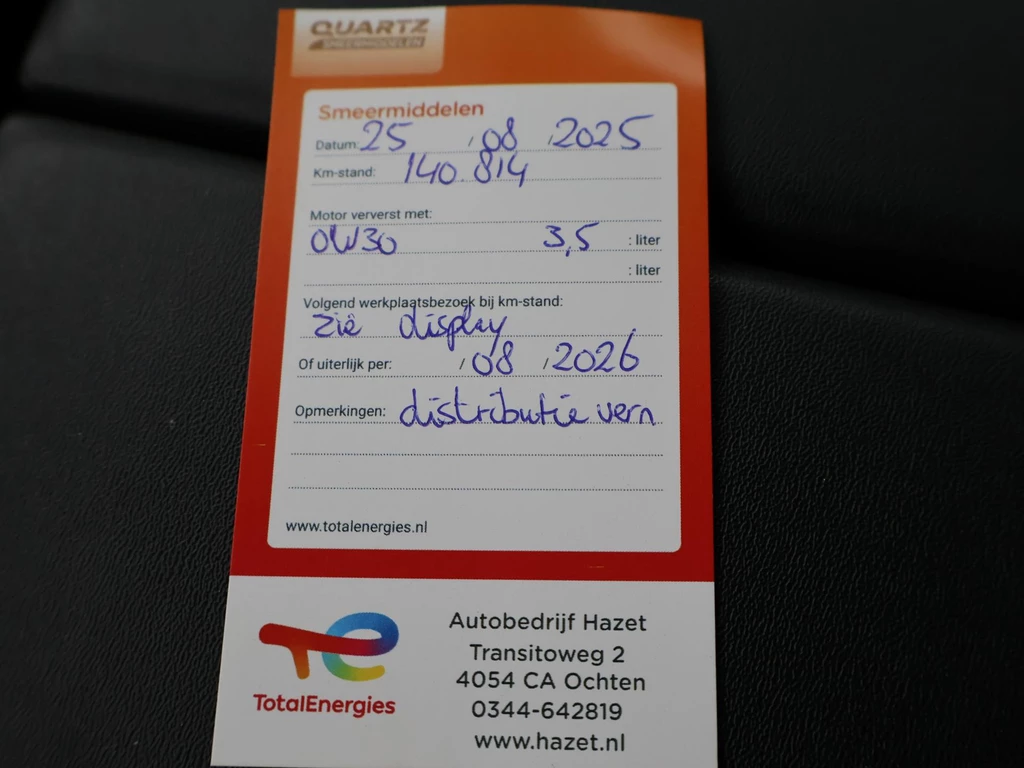 QUARTZ
SMEERMIDDELEN
Smeermiddelen
Datum: 25 / 08 / 2025
Km-stand: 140.814
Motor ververst met:
0W30 3,5 : liter
: liter
Volgend werkplaatsbezoek bij km-stand:
zie display
Of uiterlijk per: / 08 / 2026
Opmerkingen: distributie vern
www.totalenergies.nl
Autobedrijf Hazet
Transitoweg 2
4054 CA Ochten
0344-642819
www.hazet.nl
TotalEnergies